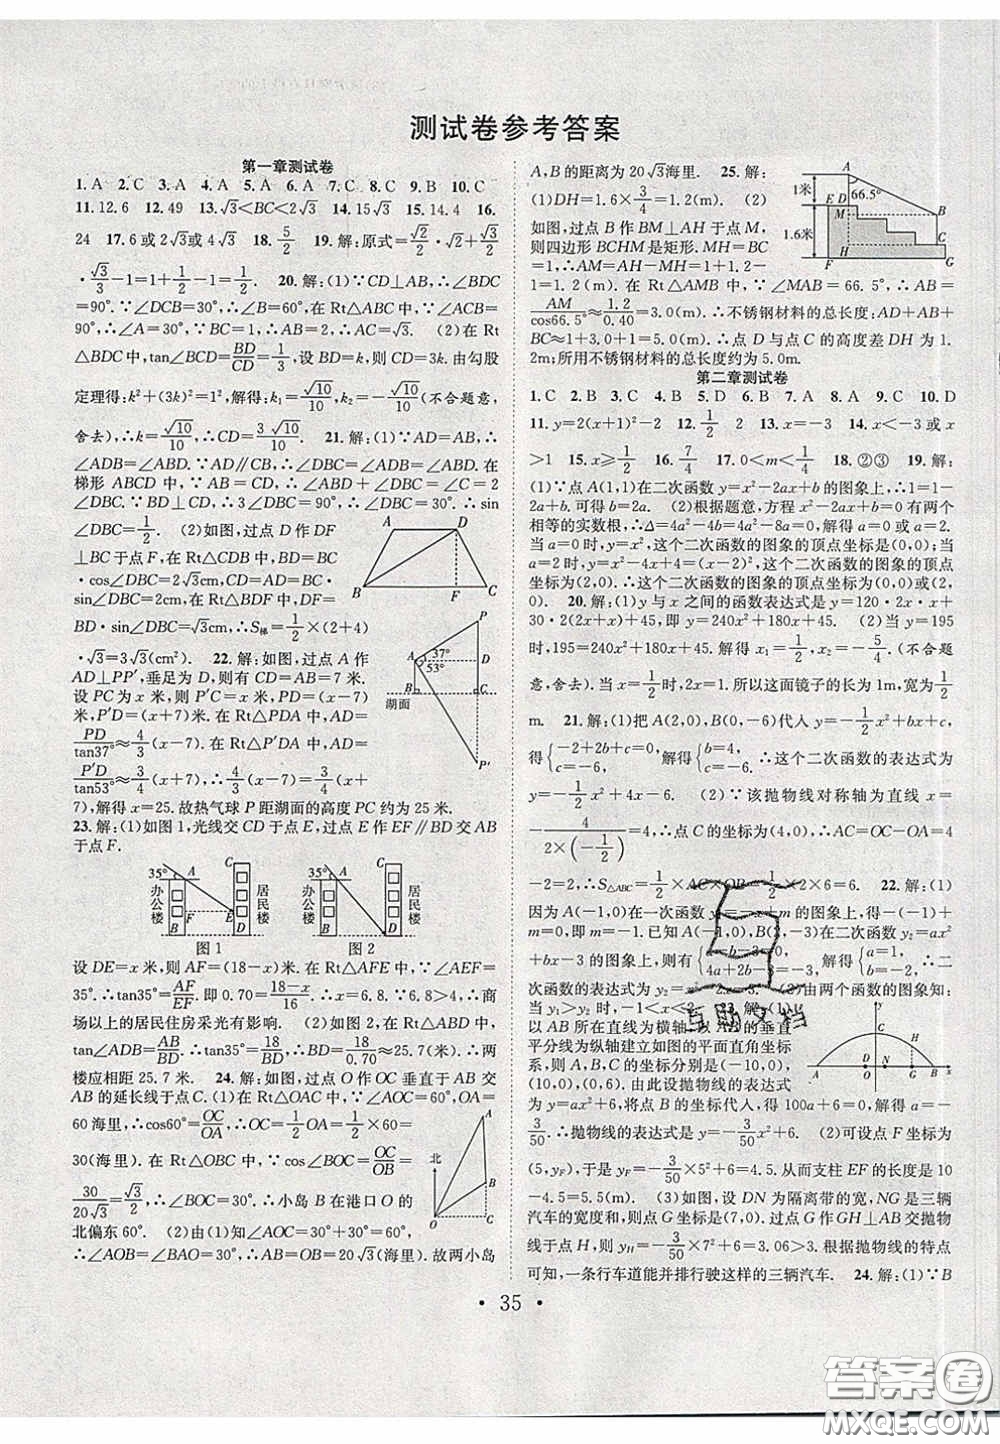 测试卷参考答案
第一章测试卷
1. A 2. C 3. A 4. A 5. A 6. A 7. C 8. C 9. B 10. C
11. 12.6 12. 49 13. √3<BC<2√3 14. 15√3 15. 14.4 16.
24 17. 6或2√3或4√3 18. 5/2 19. 解:原式=√2/2·√2+√3/2
·√3/3-1=1+1/2-1=1/2. 20. 解:(1)∵CD⊥AB,∴∠BDC
=90°.∵∠DCB=30°,∴∠B=60°.在Rt△ABC中,∵∠ACB=
90°,∴∠A=30°,∴AB=2,∴AC=√3. (2)在Rt
△BDC中,tan∠BCD=BD/CD=1/3,设BD=k,则CD=3k.由勾股
定理得:k²+(3k)²=1²,解得:k₁=√10/10,k₂=-√10/10(不合题意,
舍去),∴k=√10/10,∴CD=3√10/10. 21. 解:(1)∵AD=AB,∴
∠ADB=∠ABD.∵AD∥CB,∴∠DBC=∠ADB=∠ABD.在
梯形ABCD中,∵AB=CD,∴∠ABD+∠DBC=∠C=
2∠DBC.∵BD⊥CD,∴3∠DBC=90°,∴∠DBC=30°,∴sin
∠DBC=1/2. (2)如图,过点D作DF
⊥BC于点F.在Rt△CDB中,BD=BC
·cos∠DBC=2√3cm,CD=BC·
sin∠DBC=2cm,在Rt△BDF中,DF=
BD·sin∠DBC=√3cm,∴S梯=1/2×(2+4)
·√3=3√3(cm²). 22. 解:如图,过点A作
AD⊥PP′,垂足为D,则有CD=AB=7米.
设PC为x米,则P′C=x米,∴PD=(x-7)
米,P′D=(x+7)米.在Rt△PDA中,AD=
PD/tan37°≈4/3(x-7).在Rt△P′DA中,AD=
P′D/tan53°≈3/4(x+7),∴4/3(x-7)=3/4(x+
7),解得x=25.故热气球P距湖面的高度PC约为25米.
23. 解:(1)如图1,光线交CD于点E,过点E作EF∥BD交AB
于点F.
A D B F C
P A 37° 53° D B C 湖面 P′
35° A C 办公楼 F E 居民楼 B D 图1
35° A C 办公楼 居民楼 B D 图2
设DE=x米,则AF=(18-x)米.在Rt△AFE中,∵∠AEF=
35°,∴tan35°=AF/EF.即0.70=18-x/16,∴x=6.8>5.故商
场以上的居民住房采光有影响. (2)如图2,在Rt△ABD中,
tan∠ADB=AB/BD,∴BD=AB/tan35°=18/0.70≈25.7(米),∴两
楼应相距25.7米. 24. 解:如图,过点O作OC垂直于AB交
AB的延长线于点C.(1)在Rt△OAC中,∵∠AOC=60°,OA=
60海里,∴cos60°=OC/OA=1/2,∴OC=1/2OA=1/2×60=
30(海里).在Rt△OBC中,∵cos∠BOC=OC/OB=
30/20√3=√3/2,∴∠BOC=30°.∴小岛B在港口O的
北偏东60°. (2)由(1)知∠AOC=30°+30°=60°,
∴∠AOB=∠BAO=30°.∴AB=OB=20√3(海里).故两小岛
北 A B O C
A,B的距离为20√3海里. 25. 解:
(1)DH=1.6×3/4=1.2(m). (2)
如图,过点B作BM⊥AH于点M,
则四边形BCHM是矩形.MH=BC=
1.∴AM=AH-MH=1+1.2-
1=1.2.在Rt△AMB中,∵∠MAB=66.5°,∴AB=
AM/cos66.5°≈1.2/0.40=3.0(m).∴不锈钢材料的总长度:AD+AB+
BC≈1+3.0+1=5.0(m).∴点D与点C的高度差DH为1.
2m;所用不锈钢材料的总长度约为5.0m.
A 1米 66.5° E D M B 1.6米 H C F G
第二章测试卷
1. C 2. B 3. C 4. B 5. D 6. B 7. A 8. A 9. C 10. D
11. y=2(x+1)²-2 12. 1/2 2 13. x=-3 14. x<-3或x
>1 15. x≥1/2 16. 7/4 17. 0<m<1/4 18. ②③ 19. 解:
(1)∵点A(1,1)在二次函数y=x²-2ax+b的图象上,∴1=1-
2a+b.可得b=2a. (2)根据题意,方程x²-2ax+b=0有两个
相等的实数根,∴Δ=4a²-4b=4a²-8a=0,解得a=0或a=2.
当a=0时,y=x²,这个二次函数的图象的顶点坐标是(0,0);当
a=2时,y=x²-4x+4=(x-2)²,这个二次函数的图象的顶点
坐标为(2,0).∴这个二次函数的图象的顶点坐标为(0,0)或(2,
0). 20. 解:(1)y与x之间的函数表达式是y=120·2x·x+
30·2(x+2x)+45,即y=240x²+180x+45. (2)当y=195
时,195=240x²+180x+45.解得x₁=1/2,x₂=-5/4(不合题
意,舍去).当x=1/2时,2x=1.所以这面镜子的长为1m,宽为1/2
m. 21. 解:(1)把A(2,0),B(0,-6)代人y=-1/2x²+bx+c,
得{-2+2b+c=0,c=-6,解得{b=4,c=-6.∴这个二次函数的表达式为
y=-1/2x²+4x-6. (2)∵该抛物线对称轴为直线x=
-4/2×(-1/2)=4,∴点C的坐标为(4,0),∴AC=OC-OA=4
-2=2,∴S△ABC=1/2×AC×OB=1/2×2×6=6. 22. 解:(1)
因为A(-1,0)在一次函数y₁=-x+m的图象上,得-(-1)+
m=0,即m=-1.已知A(-1,0),B(2,-3)在二次函数y₂=ax²
+bx-3的图象上,则有{a-b-3=0,4a+2b-3=-3,解得{a=1,b=-2.∴二
次函数为y₂=x²-2x-3. (2)由两个函数的图象知:
当y₁>y₂时,-1<x<2. 23. 解:(1)
以AB所在直线为横轴,以AB的垂直
平分线为纵轴建立如图的平面直角坐标
系,则A,B,C的坐标分别是(-10,0),
(10,0),(0,6).由此设抛物线的表达式
为y=ax²+6,将B的坐标代入,得100a+6=0,解得a=-
3/50.∴抛物线的表达式是y=-3/50x²+6. (2)可设点F坐标为
(5,yF),于是yF=-3/50×5²+6=4.5.从而支柱EF的长度是10
-4.5=5.5(米). (3)如图,设DN为隔离带的宽,NG是三辆
汽车的宽度和,则点G的坐标是(7,0).过点G作GH⊥AB交抛物
线于点H,则yH=-3/50×7²+6=3.06>3.根据抛物线的特点
可知,一条行车道能并排行驶这样的三辆汽车. 24. 解:(1)∵B
y C H A D O N G B x
互助文档
· 35 ·
答案圈
MXQE.COM